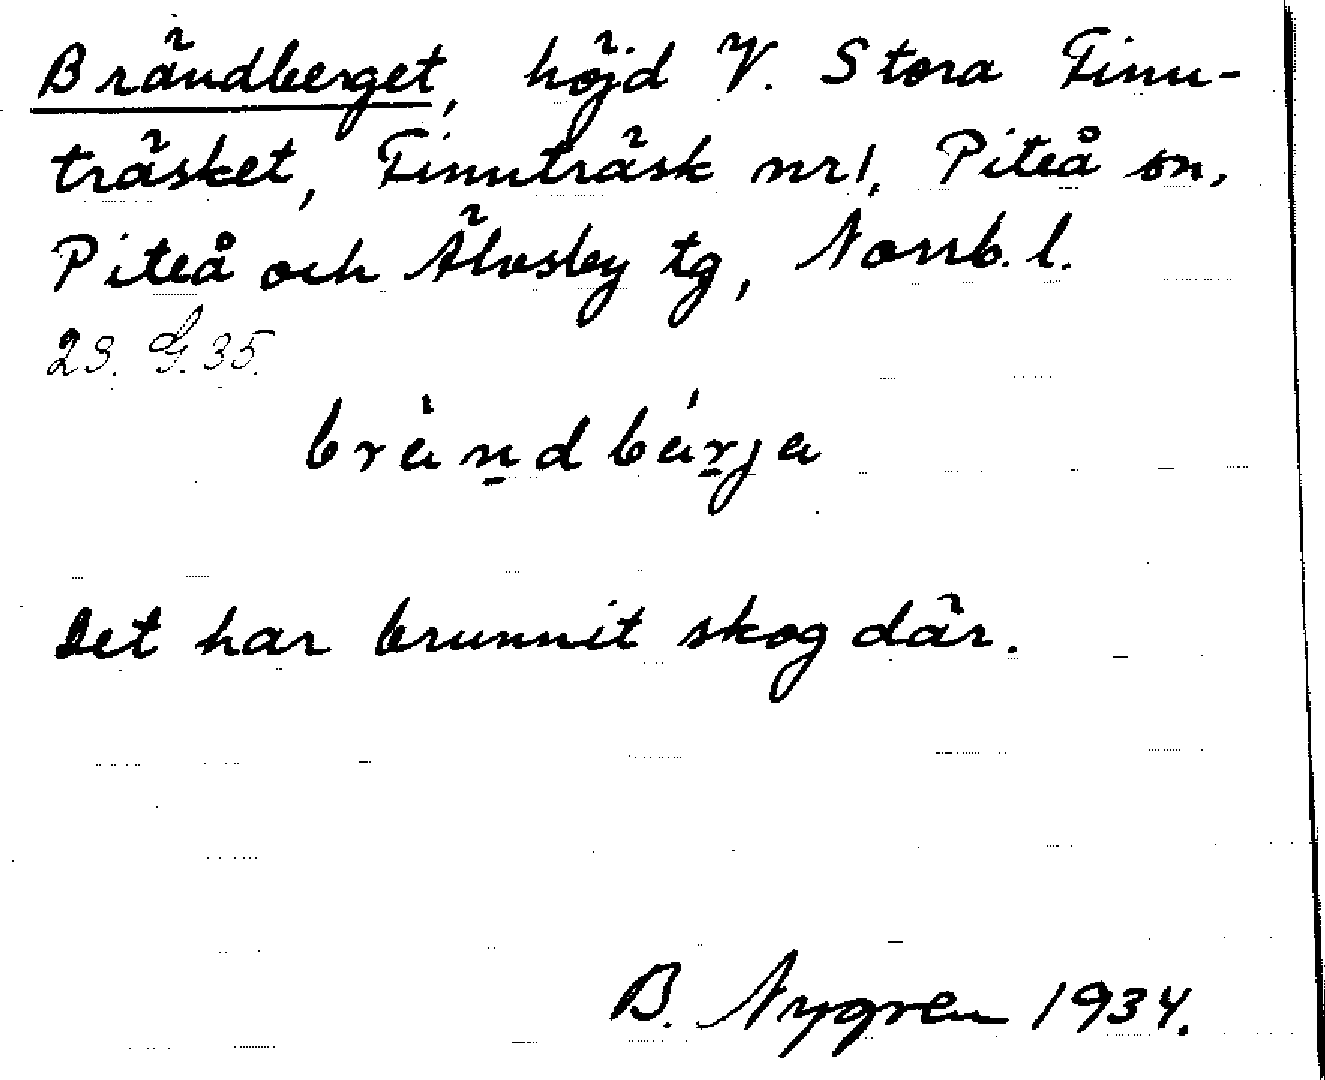 Brändberget, höjd V. Stora Finn-
träsket, Finnträsk nr 1, Piteå sn,
Piteå och Älvsby tg, Norrb. l.
23. G. 35.
brànd bárja
Det har brunnit skog där.
B. Nygren 1934.